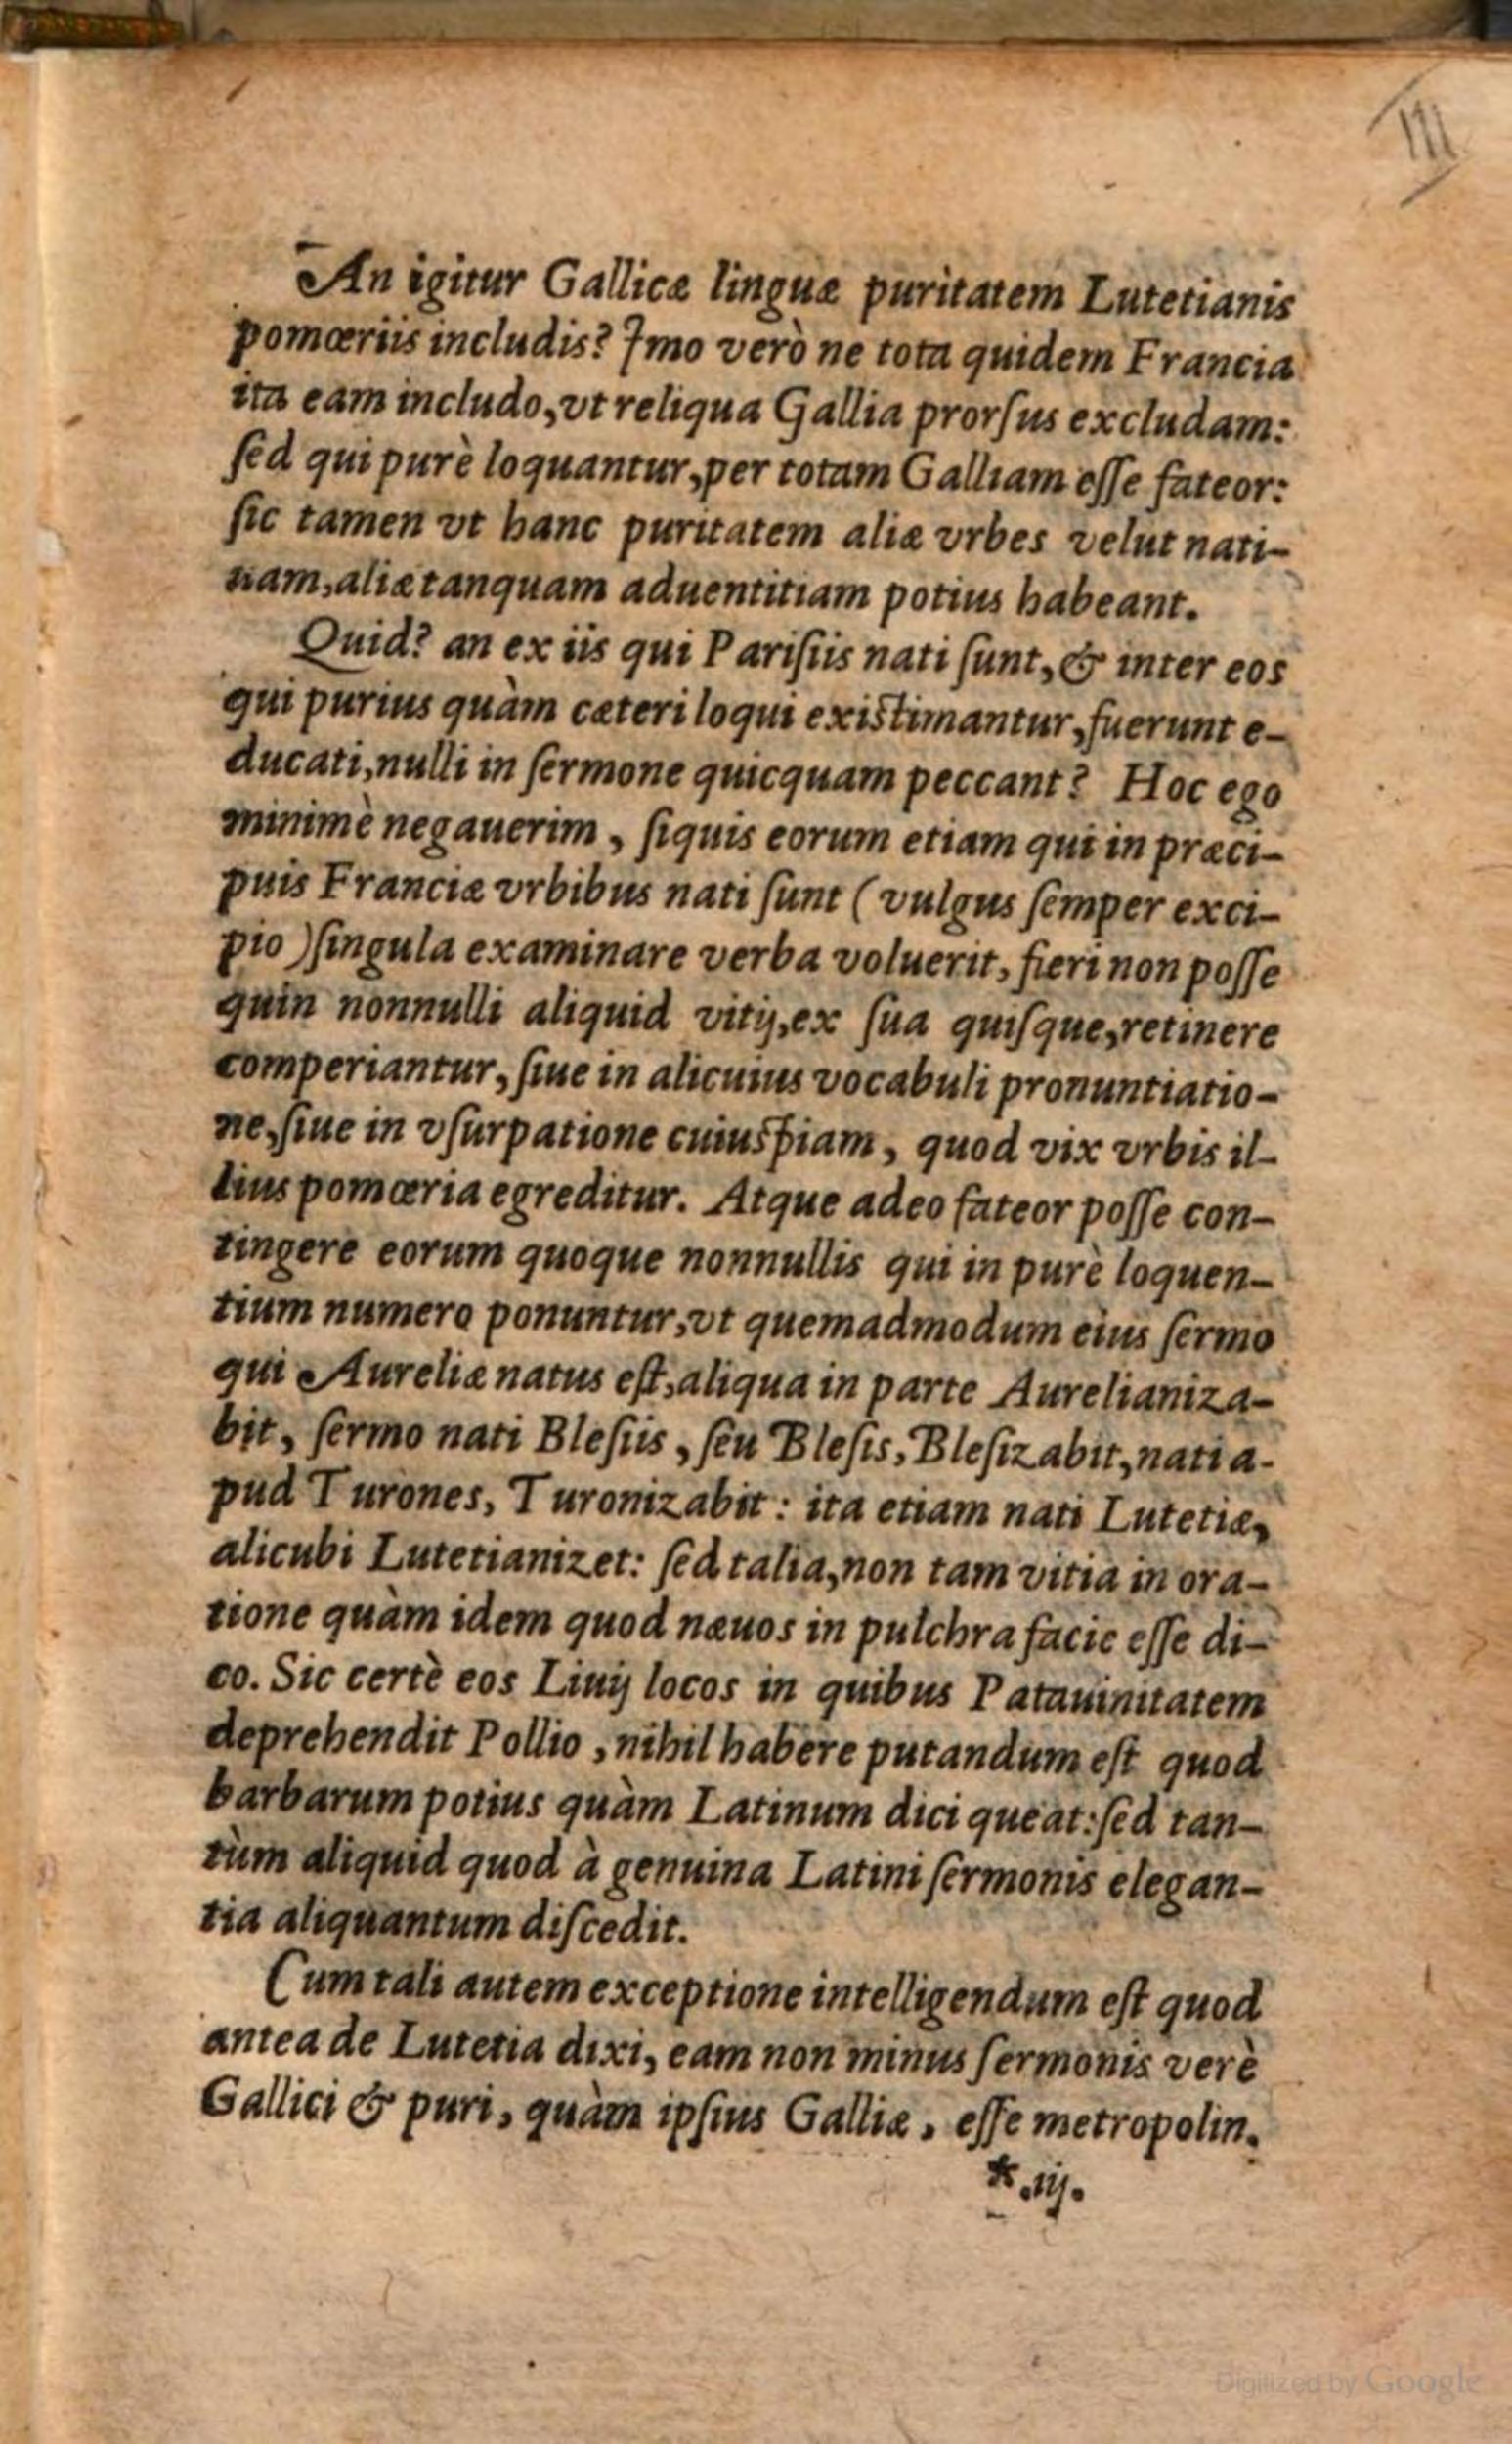 III
An igitur Gallicæ linguæ puritatem Lutetianis
pomœriis includis? Imo verò ne tota quidem Francia
ita eam includo, vt reliqua Gallia prorſus excludam:
ſed qui purè loquantur, per totam Galliam eſſe fateor:
ſic tamen vt hanc puritatem aliæ vrbes velut nati-
uam, aliæ tanquam aduentitiam potius habeant.
Quid? an ex iis qui Pariſiis nati ſunt, & inter eos
qui purius quàm cæteri loqui exiſtimantur, fuerunt e-
ducati, nulli in ſermone quicquam peccant? Hoc ego
minimè negauerim, ſiquis eorum etiam qui in præci-
puis Franciæ vrbibus nati ſunt (vulgus ſemper exci-
pio) ſingula examinare verba voluerit, fieri non poſſe
quin nonnulli aliquid vitij, ex ſua quiſque, retinere
comperiantur, ſiue in alicuius vocabuli pronuntiatio-
ne, ſiue in vſurpatione cuiuſpiam, quod vix vrbis il-
lius pomœria egreditur. Atque adeo fateor poſſe con-
tingere eorum quoque nonnullis qui in purè loquen-
tium numero ponuntur, vt quemadmodum eius ſermo
qui Aureliæ natus eſt, aliqua in parte Aurelianiza-
bit, ſermo nati Bleſiis, ſeu Bleſis, Bleſizabit, nati a-
pud Turones, Turonizabit: ita etiam nati Lutetiæ,
alicubi Lutetianizet: ſed talia, non tam vitia in ora-
tione quàm idem quod næuos in pulchra facie eſſe di-
co. Sic certè eos Liuij locos in quibus Patauinitatem
deprehendit Pollio, nihil habere putandum eſt quod
barbarum potius quàm Latinum dici queat: ſed tan-
tùm aliquid quod à genuina Latini ſermonis elegan-
tia aliquantum diſcedit.
Cum tali autem exceptione intelligendum eſt quod
antea de Lutetia dixi, eam non minus ſermonis verè
Gallici & puri, quàm ipſius Galliæ, eſſe metropolin.
*.iij.
Digitized by Google